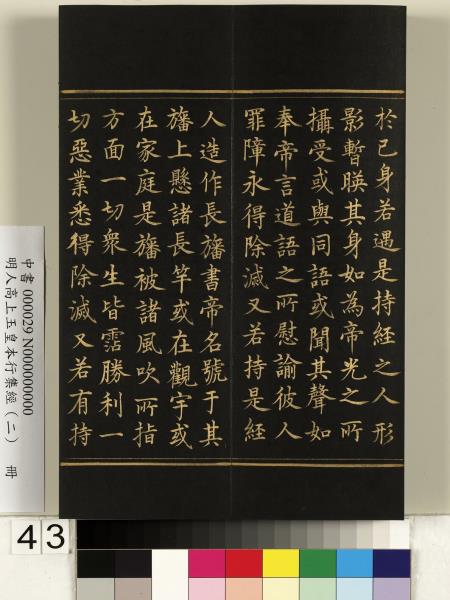 於已身若遇是持經之人形
影暫暎其身如為帝光之所
攝受或與同語或聞其聲如
奉帝言道語之所慰諭彼人
罪障永得除滅又若持是經
人造作長旛書帝名號于其
旛上懸諸長竿或在觀宇或
在家庭是旛被諸風吹所指
方面一切衆生皆霑勝利一
切惡業悉得除滅又若有持
中書 000029 N000000000
明人高上玉皇本行集經(二) 冊
43